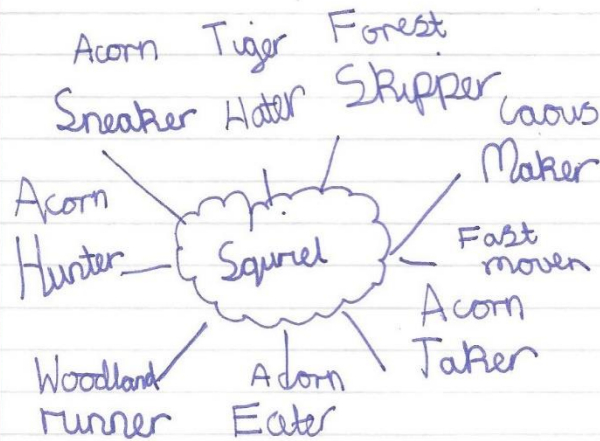 Acorn
Sneaker
Tiger
Hater
Forest
Skipper
Caous
Maker
Acorn
Hunter
Squriel
Fast
mover
Acorn
Taker
Woodland
runner
Adorn
Eater